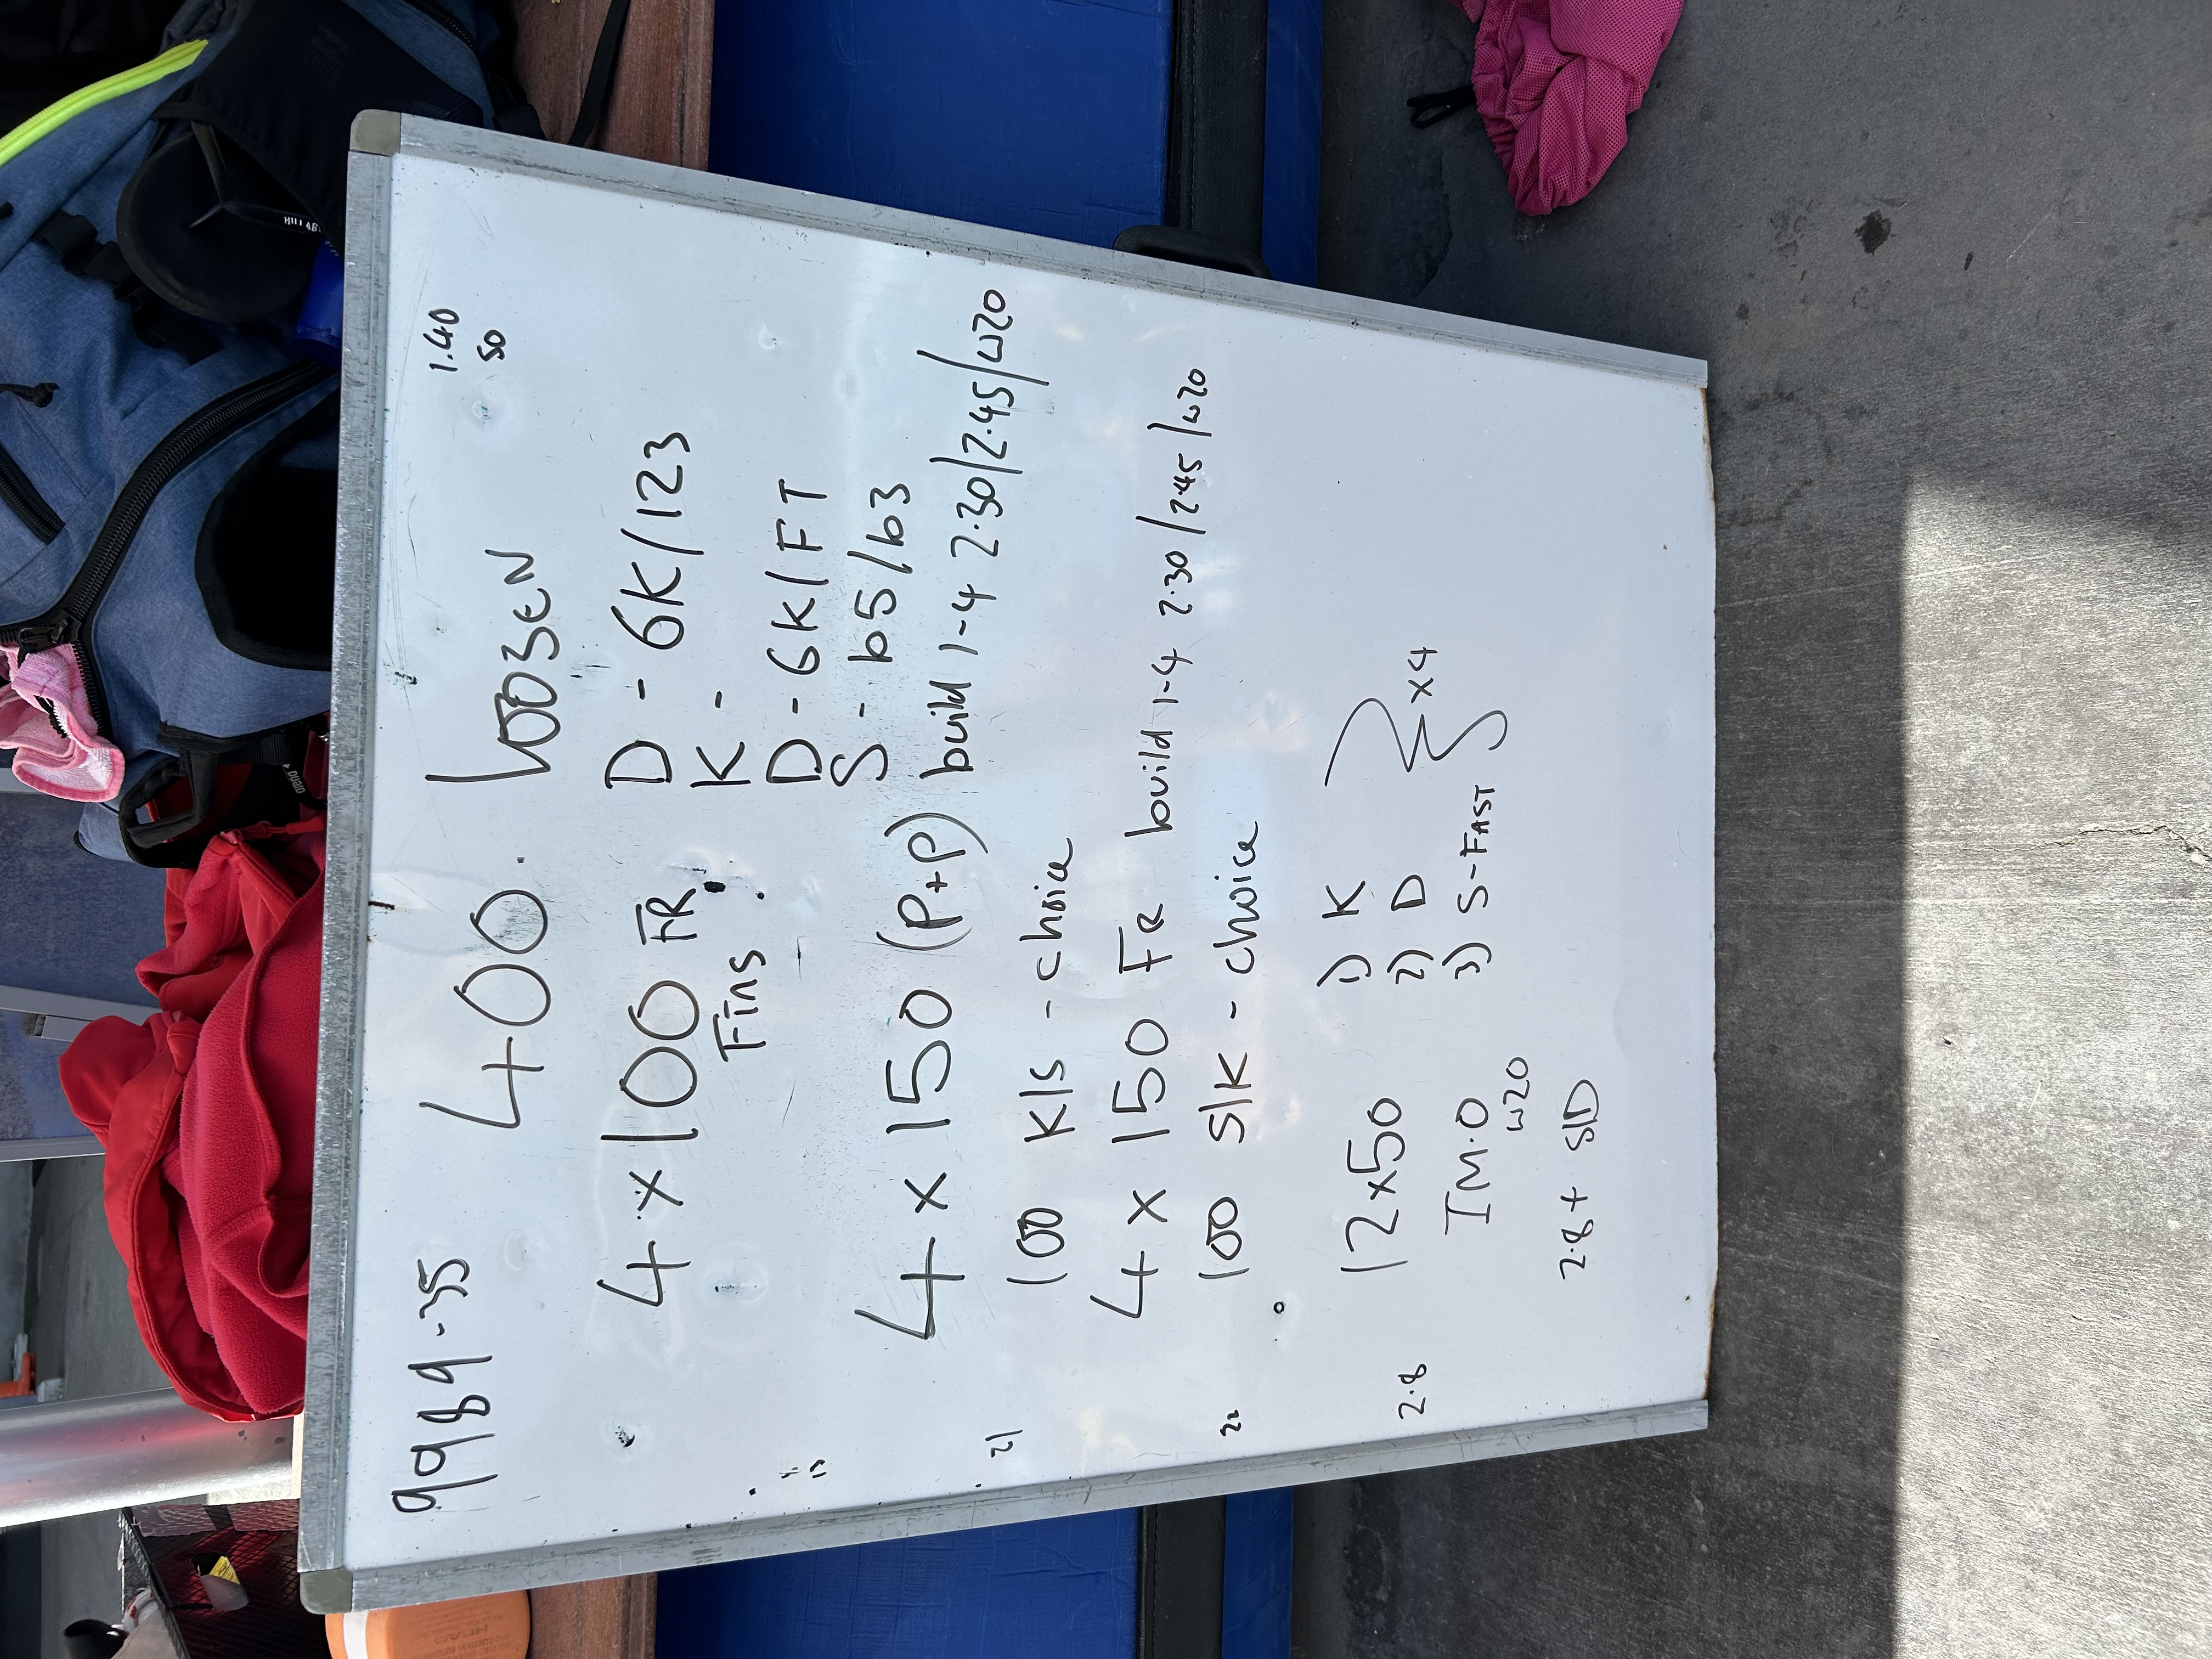 9989.35
1.40
50
400. LOOSEN
4 x 100 FR D - 6K/123
Fins K -
D - 6K/FT
S - b5/b3
4 x 150 (P+P) build 1-4 2.30/2.45/w20
21
100 K/S - choice
4 x 150 FR build 1-4 2.30/2.45/w20
100 S/K - choice
12x50 1) K
2.8
2) D x4
IM.O 3) S-FAST
w20
2.8+ S/D
arena
HEAD